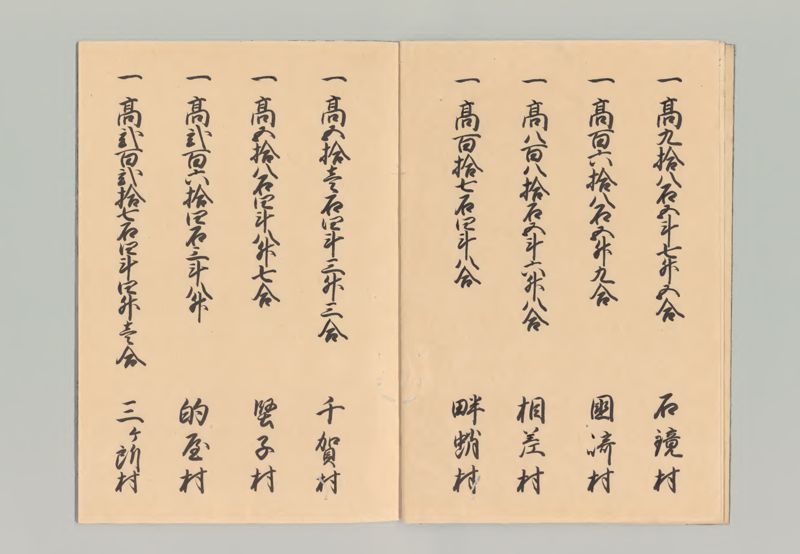 一 高九拾八石五斗七升五合 石鏡村
一 高百六拾八石五升九合 国崎村
一 高八百八拾石五斗六升八合 相差村
一 高百拾七石四斗八合 畔蛸村
一 高五拾壱石四斗三升三合 千賀村
一 高五拾八石四斗八升七合 堅子村
一 高弐百六拾四石三斗八升 的屋村
一 高弐百弐拾七石四斗四升壱合 三ヶ所村